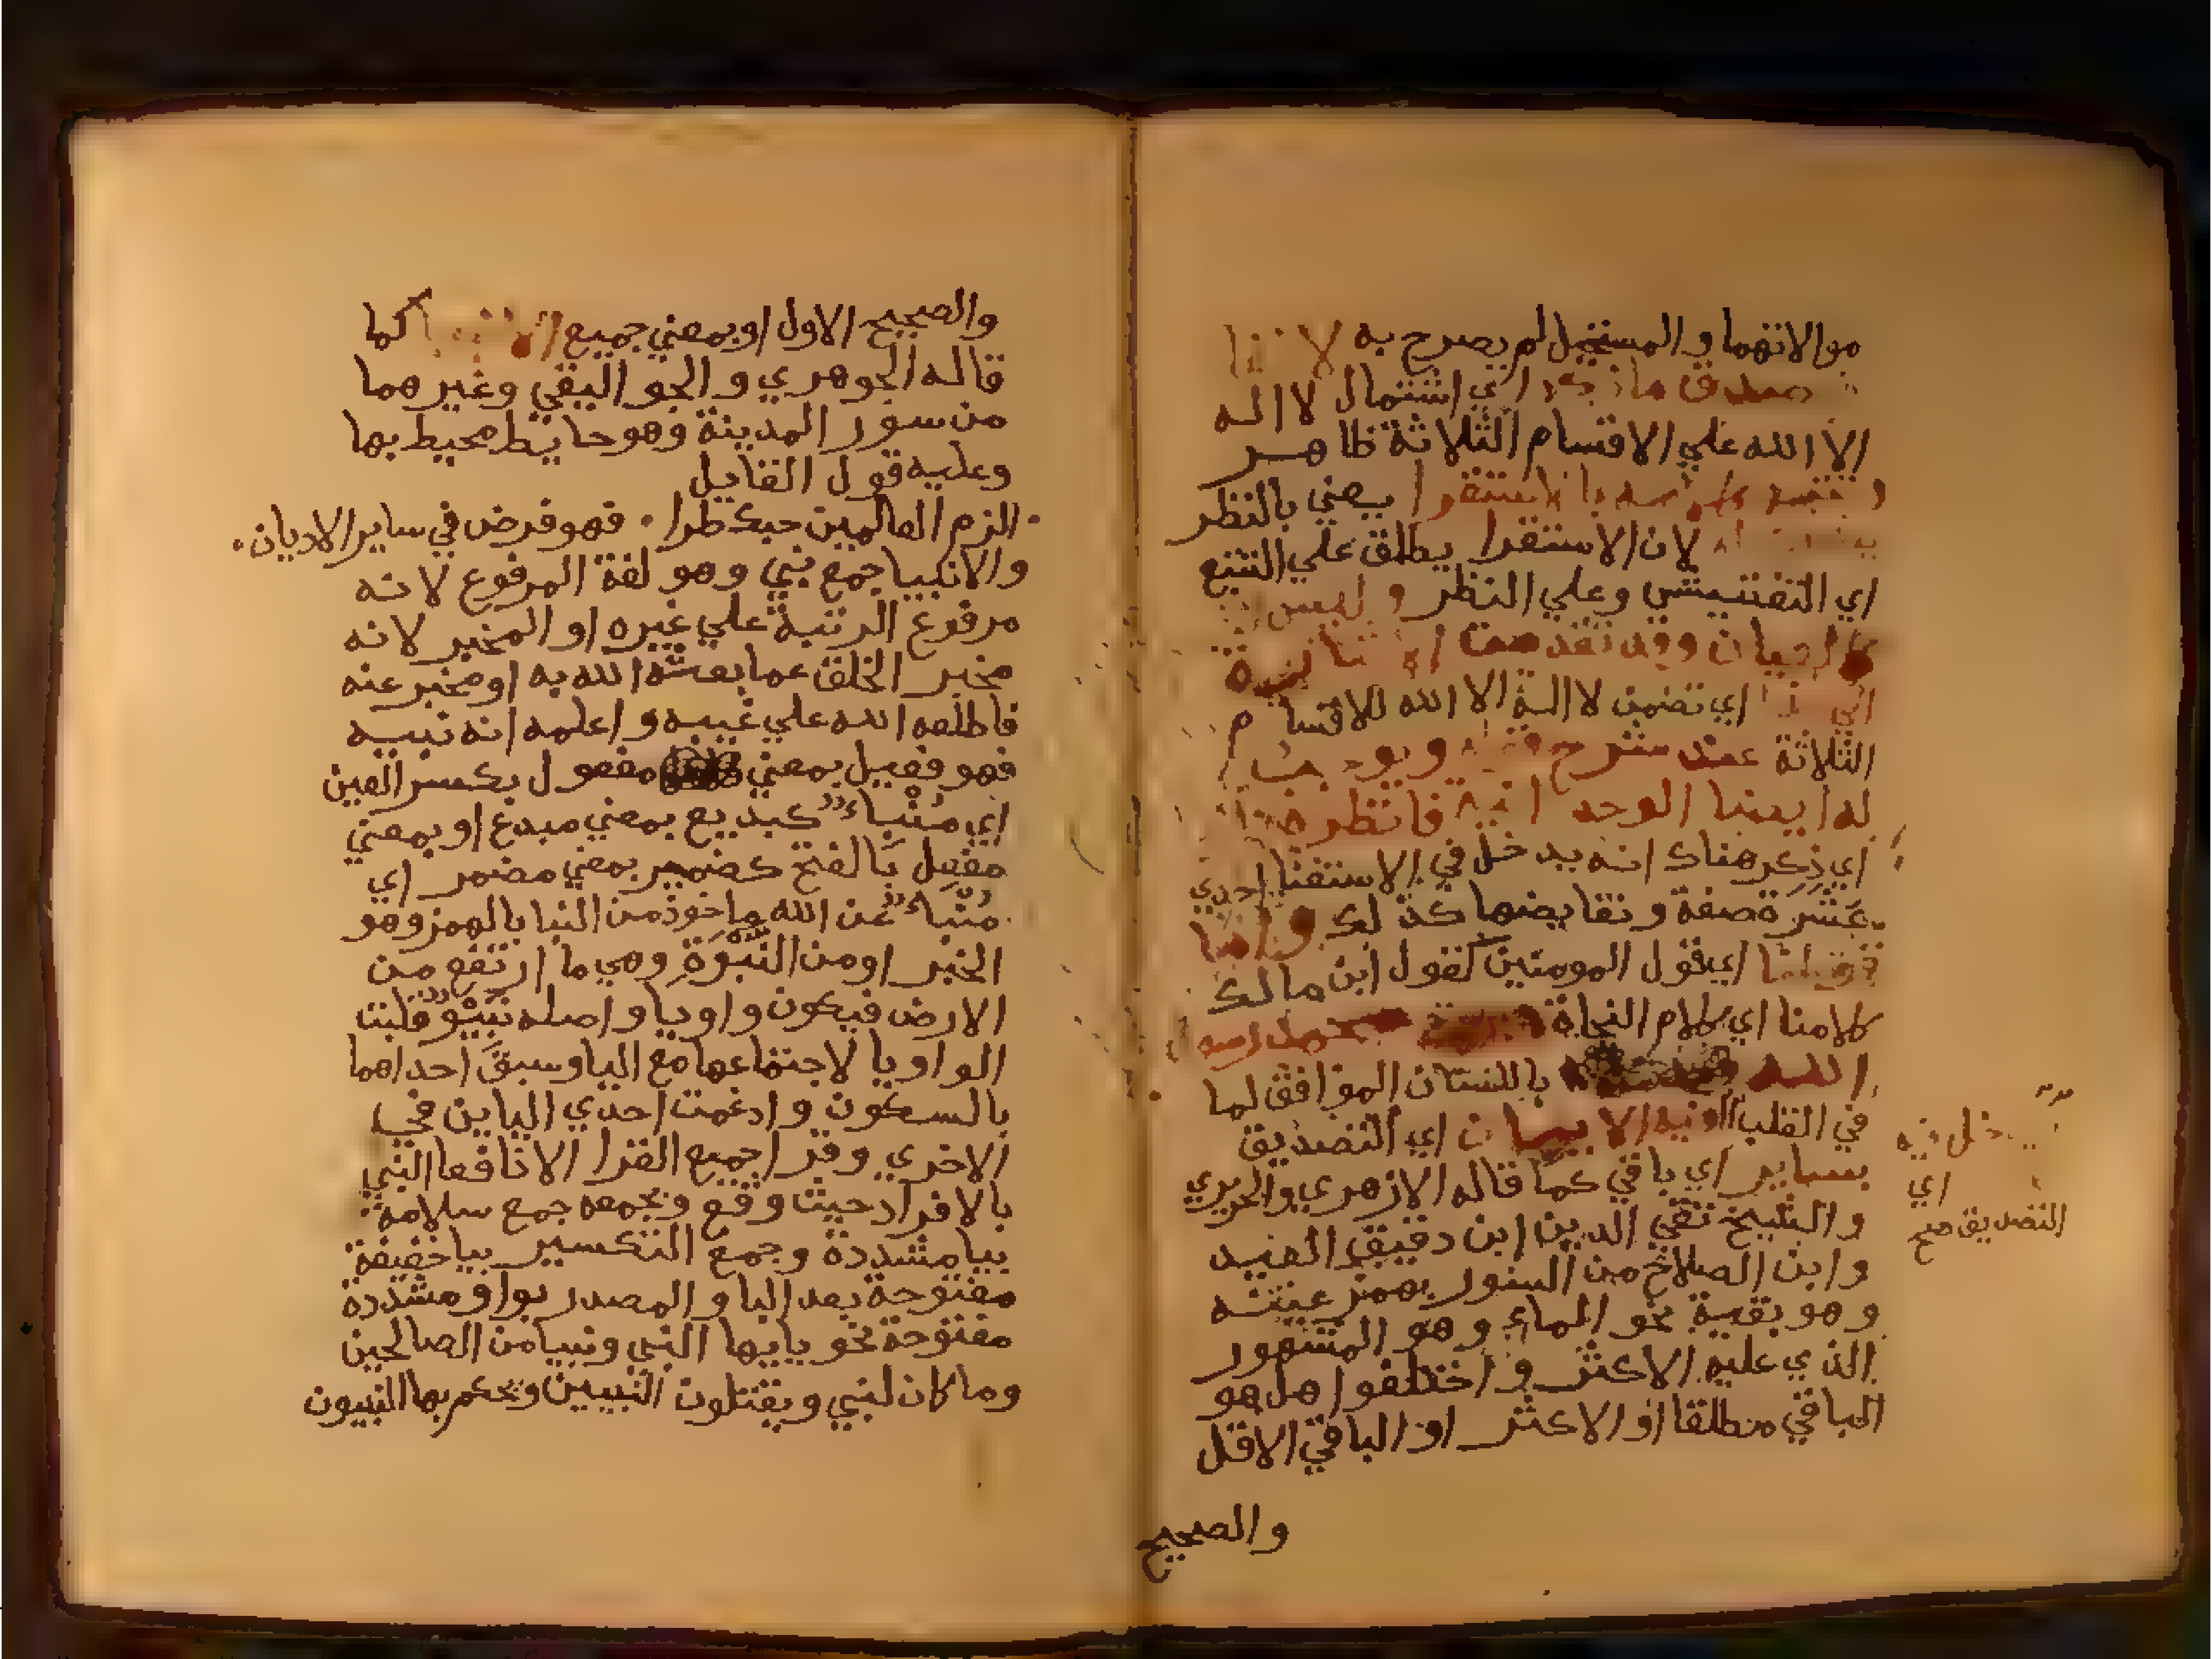 موالاتهما والمستحيل لم يصرح به لاننا
صدق ما ذكر اي اشتمال لا اله
الا الله علي الاقسام الثلاثة ظاهر
بالاستقرا يعني بالنظر
لان الاستقرا يطلق علي التتبع
اي التفتيش وعلي النظر وليس
كالعيان وقد تقدمت الاشارة
الي اي تضمن لا اله الا الله للاقسام
الثلاثة عند شرح ويوجد
له ايضا فانظر
اي ذكر هناك انه يدخل في الاستغنا احدي
عشرة صفة ونقايضها كذلك واما
قولنا اي قول المومنين كقول ابن مالك
كلامنا اي كلام النحاة محمد رسول
الله باللسان الموافق لما
في القلب الايمان اي التصديق
بساير اي باقي كما قاله الازهري والحريري
والشيخ تقي الدين ابن دقيق العيد
وابن الصلاح من السور بهمز عينه
وهو بقية نحو الماء وهو المشهور
الذي عليه الاكثر واختلفوا هل هو
الباقي مطلقا او الاكثر او الباقي الاقل
والصحيح
يدخل فيه
اي
التصديق صح
والصحيح الاول او بمعني جميع كما
قاله الجوهري والجواليقي وغيرهما
من سور المدينة وهو حايط محيط بها
وعليه قول القايل
الزم العالمين حبك طرا . فهو فرض في ساير الاديان .
والانبيا جمع نبي وهو لغة المرفوع لانه
مرفوع الرتبة علي غيره او المخبر لانه
مخبر الخلق عما بعثه الله به او مخبر عنه
فاطلعه الله علي غيبه واعلمه انه نبيه
فهو فعيل بمعني مفعول بكسر العين
اي منباء كبديع بمعني مبدع او بمعني
مفعل بالفتح كضمير بمعني مضمر اي
منباء عن الله ماخوذ من النبا بالهمز وهو
الخبر او من النبوة وهي ما ارتفع من
الارض فيكون واويا واصله نبيو قلبت
الواو يا لاجتماعها مع اليا وسبق احداهما
بالسكون وادغمت احدي الياين في
الاخري وقرا جميع القرا الا نافعا النبي
بالافراد حيث وقع وبجمعه جمع سلامة
بيا مشددة وجمع التكسير بيا خفيفة
مفتوحة بعد البا والمصدر بواو مشددة
مفتوحة نحو يايها النبي ونبيا من الصالحين
وما كان لنبي ويقتلون النبيين ويحكم بها النبيون